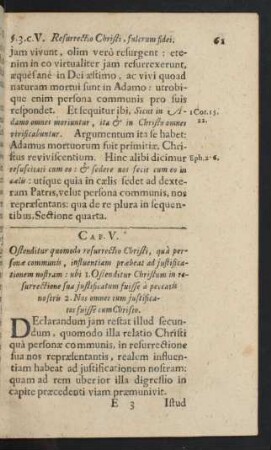 §.3.c.V. Resurrectio Christi, fulcrum fidei. 61
jam vivunt, olim verò resurgent: ete-
nim in eo virtualiter jam resurrexerunt,
æquè sanè in Dei æstimo, ac vivi quoad
naturam mortui sunt in Adamo: utrobi-
que enim persona communis pro suis
respondet. Et sequitur ibi, Sicut in A- 1 Cor.15.
damo omnes moriuntur, ita & in Christo omnes 22.
vivificabuntur. Argumentum ita se habet:
Adamus mortuorum fuit primitiæ, Chri-
stus reviviscentium. Hinc alibi dicimur Eph.2.6.
resuscitati cum eo: & sedere nos fecit cum eo in
cælis: utique quia in cælis sedet ad dexte-
ram Patris, velut persona communis, nos
repræsentans: qua de re plura in sequen-
tibus. Sectione quarta.
CAP. V.
Ostenditur quomodo resurrectio Christi, quà per-
sonæ communis, influentiam præbeat ad justifica-
tionem nostram: ubi 1. Ostenditur Christum in re-
surrectione sua justificatum fuisse à peccatis
nostris 2. Nos omnes tum justifica-
tos fuisse cum Christo.
DEclarandum jam restat illud secun-
dum, quomodo illa relatio Christi
quà personæ communis, in resurrectione
sua nos repræsentantis, realem influen-
tiam habeat ad justificationem nostram:
quam ad rem uberior illa digressio in
capite præcedenti viam præmunivit.
E 3 Istud